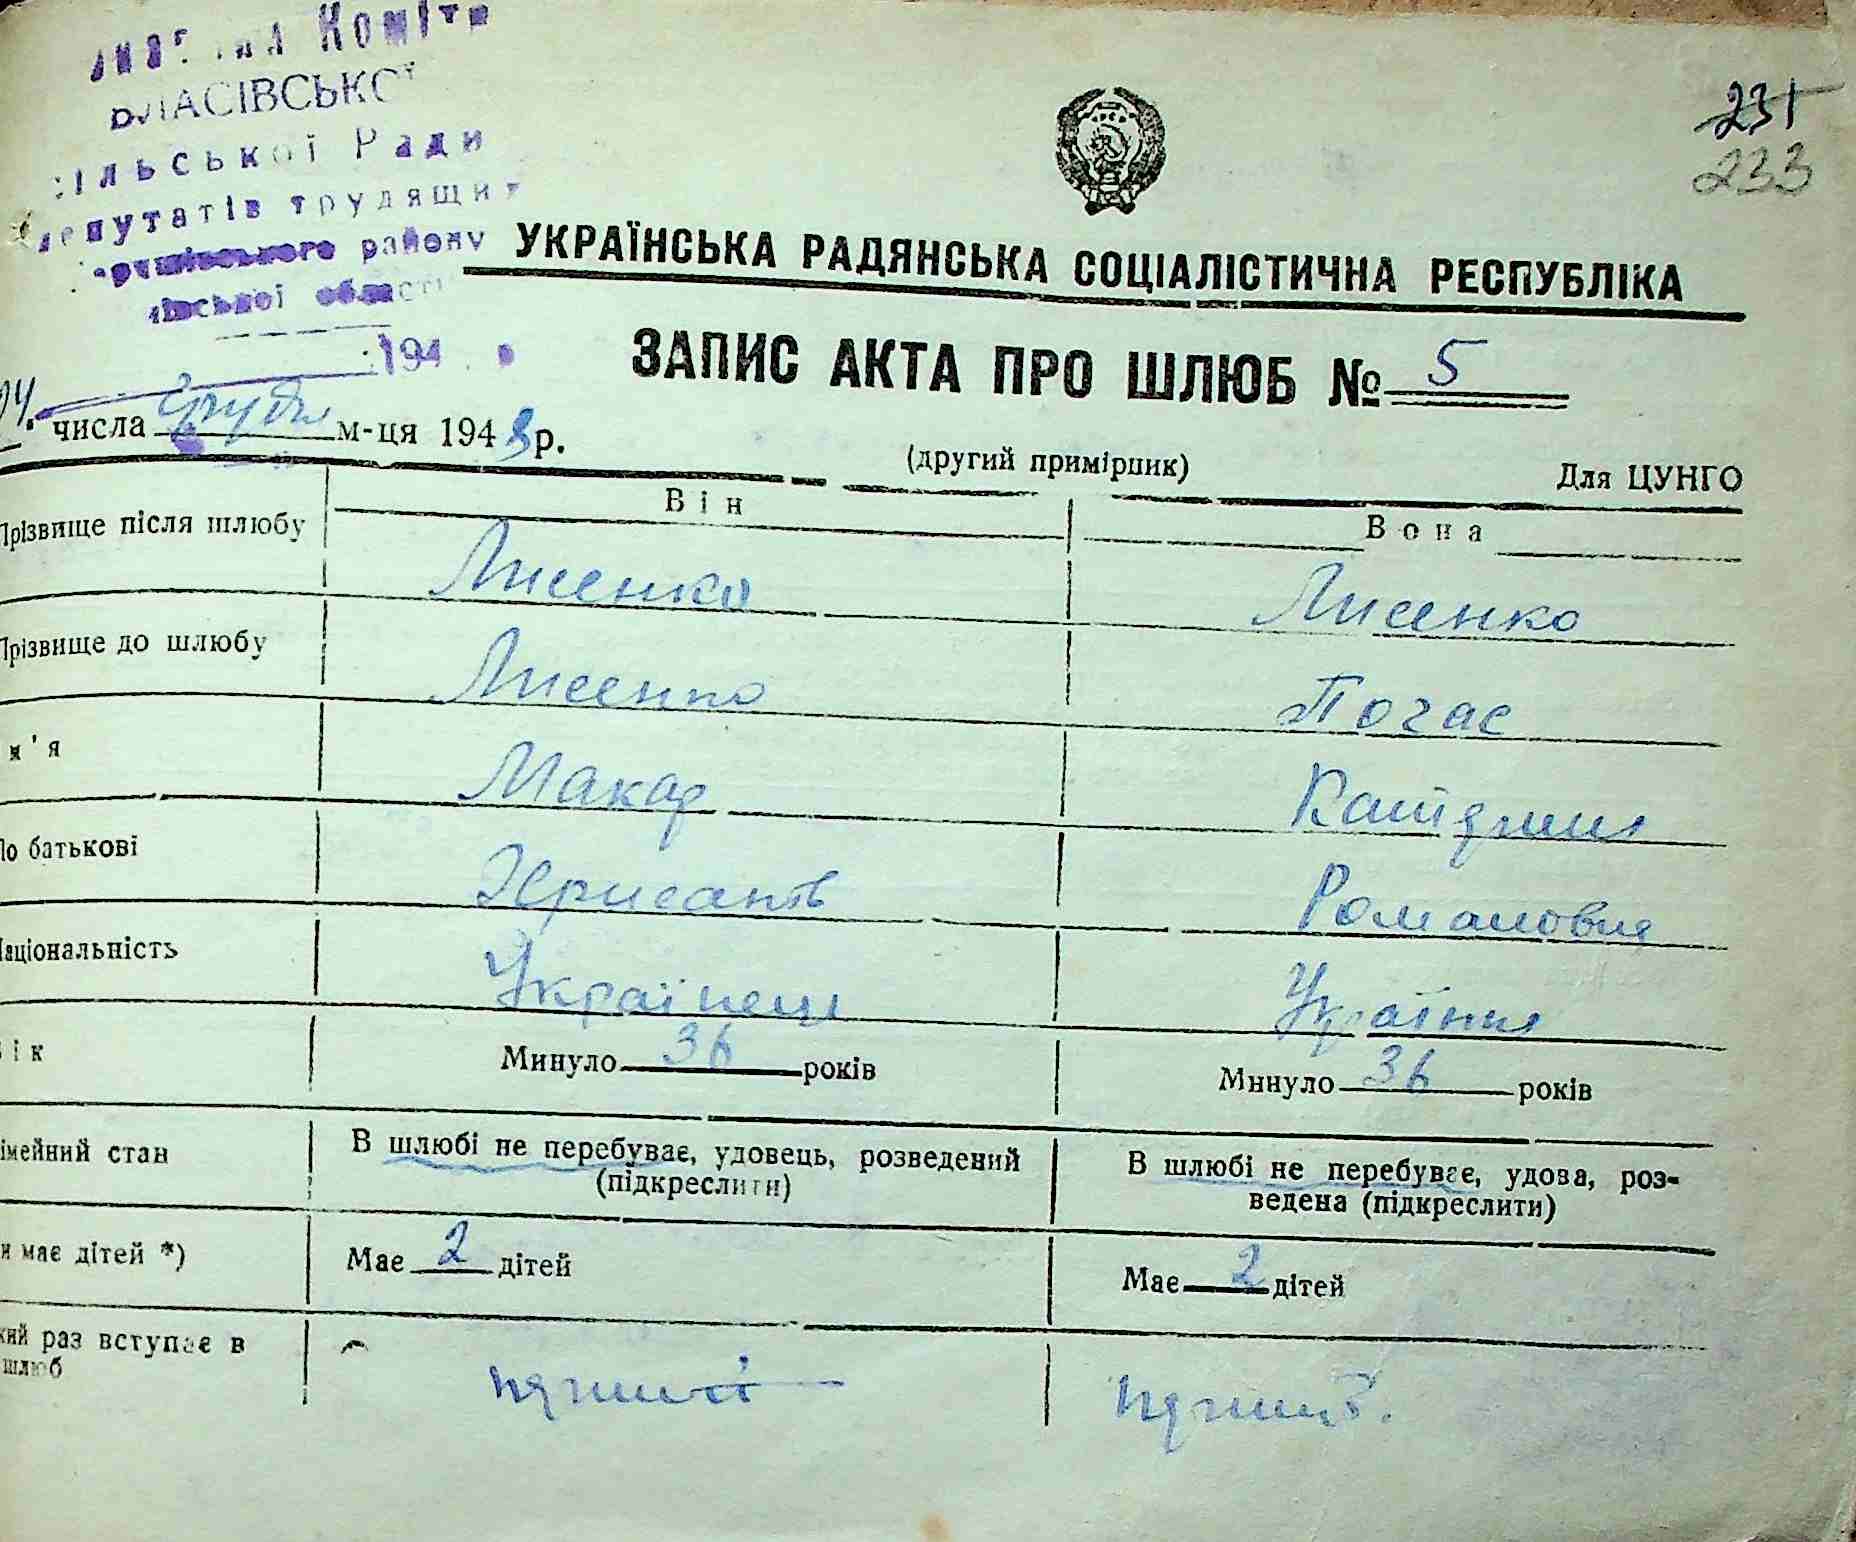 Коміте
ВЛАСІВСЬКОЇ
сільської Ради
депутатів трудящих
району
області
194
231
233
УКРАЇНСЬКА РАДЯНСЬКА СОЦІАЛІСТИЧНА РЕСПУБЛІКА
ЗАПИС АКТА ПРО ШЛЮБ № 5
24 числа Грудня м-ця 1943 р.
(другий примірник) Для ЦУНГО
Він Вона
Прізвище після шлюбу Лисенко Лисенко
Прізвище до шлюбу Лисенко Погас
м'я Макар Катерина
По батькові Хрисантів Романовна
Національність Українець Українка
Вік Минуло 36 років Минуло 36 років
імейний стан В шлюбі не перебуває, удовець, розведений (підкреслити) В шлюбі не перебуває, удова, роз-
ведена (підкреслити)
и має дітей *) Має 2 дітей Має 2 дітей
кий раз вступає в
шлюб перший перший.